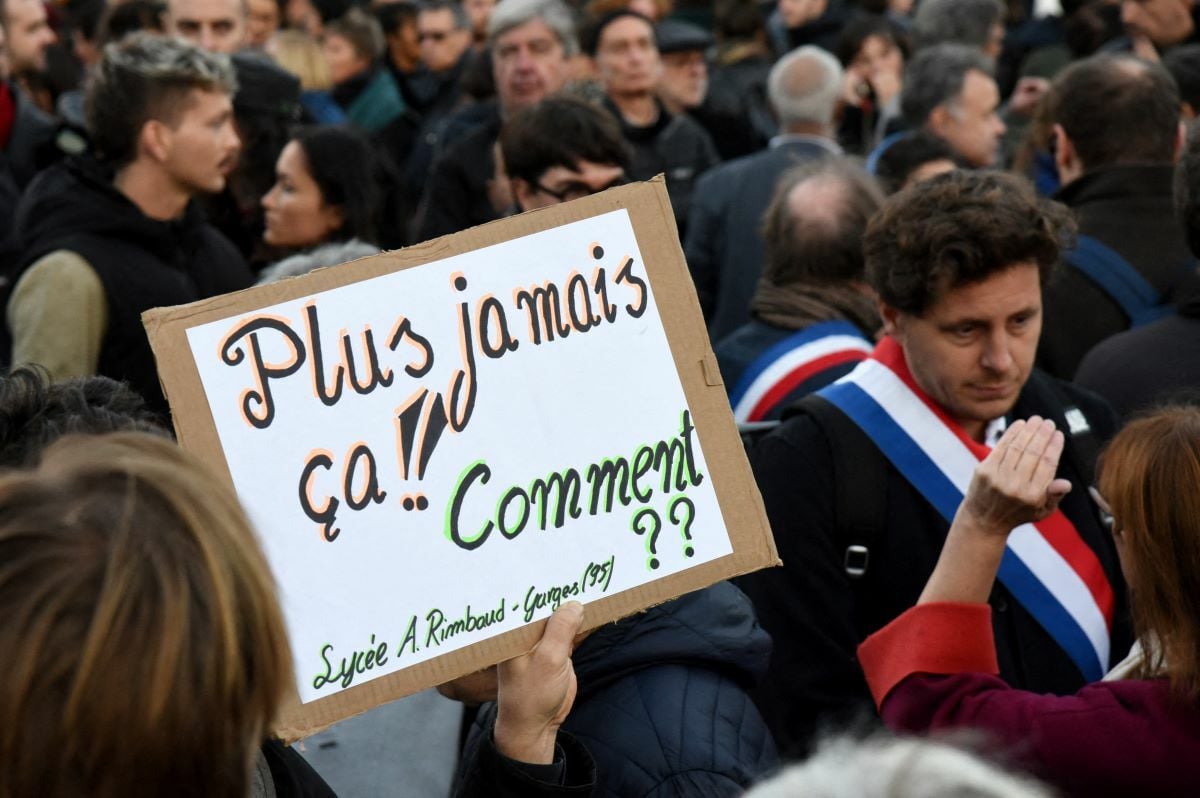 Plus jamais
ça !!
Comment
??
Lycée A. Rimbaud - Garges (95)